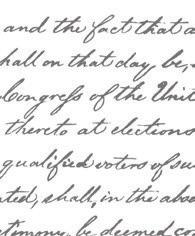 and the fact that a
hall on that day be,
Congress of the Unit
thereto at elections
qualified voters of su
ted, shall, in the abs
timony, be deemed co